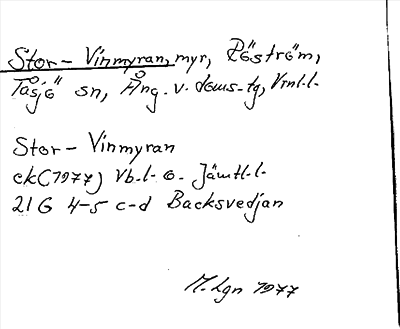 Stor- Vinmyran, myr, Röström,
Tåsjö sn, Ång. v. doms-tg, Vrnl-l.
Stor- Vinmyran
ek (1977) Vb.l. o. Jämtl.l.
21 G 4-5 c-d Backsvedjan
M. Lgn 1977